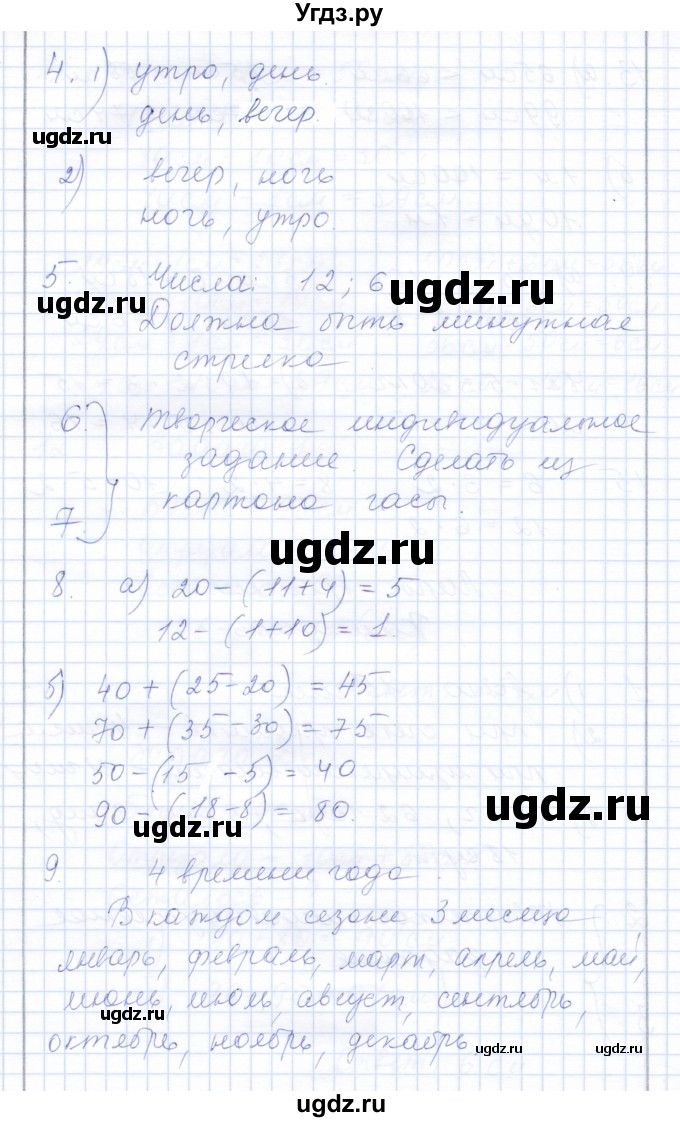 Угдз.ру
4. 1) утро, день.
день, вечер.
ugdz.ru
2) вечер, ночь
ночь, утро.
5. Числа: 12; 6
ugdz.ru
ugdz.ru
Должна быть минутная
стрелка
6. творческое индивидуальное
задание. Сделать из
7. картона часы.
ugdz.ru
8. а) 20-(11+4) = 5
12-(1+10) = 1.
б) 40+(25-20) = 45
70+(35-30) = 75
50-(15-5) = 40
90-(18-8) = 80.
ugdz.ru
ugdz.ru
9. 4 времени года.
В каждом сезоне 3 месяца
январь, февраль, март, апрель, май,
июнь, июль, август, сентябрь,
ugdz.ru
октябрь, ноябрь, декабрь
ugdz.ru
ugdz.ru
ugdz.ru